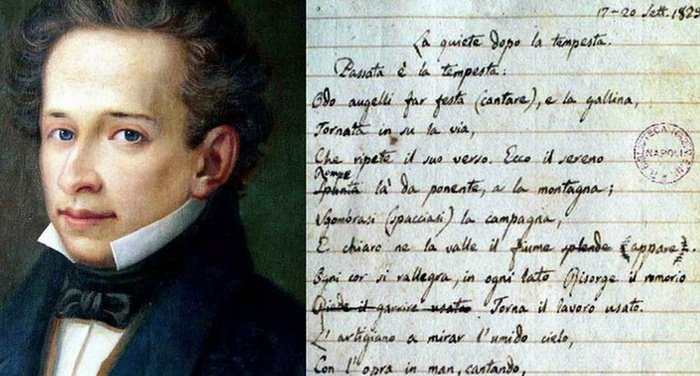 17-20 Sett. 1829
La quiete dopo la tempesta.
Passata è la tempesta:
Odo augelli far festa (cantare), e la gallina,
Tornata in su la via,
Che ripete il suo verso. Ecco il sereno
Rompe
Spunta là da ponente, a la montagna;
Sgombrasi (spacciasi) la campagna,
E chiaro ne la valle il fiume splende (appare).
Ogni cor si rallegra, in ogni lato Risorge il romorio
usato. Torna il lavoro usato.
L'artigiano a mirar l'umido cielo,
Con l'opra in man, cantando,
BIBLIOTECA
NAPOLI